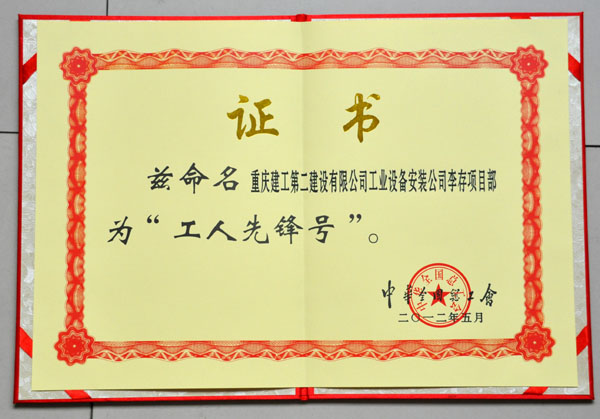 证书
兹命名 重庆建工第二建设有限公司工业设备安装公司李存项目部
为“工人先锋号”。
中华全国总工會
二〇一二年五月